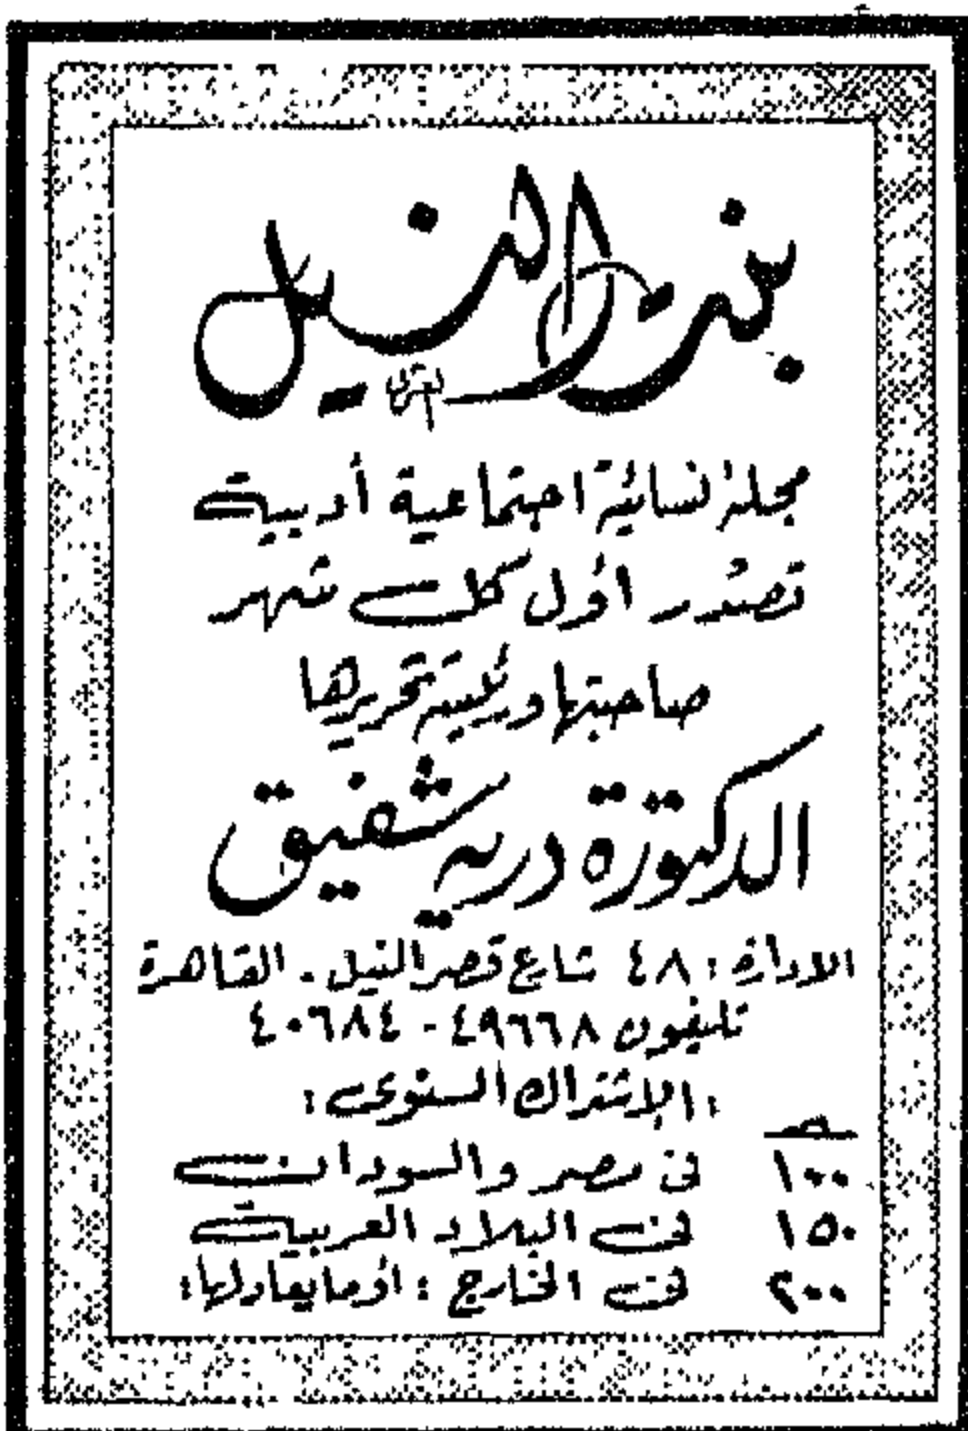 بنت النيل
مجلة نسائية اجتماعية أدبية
تصدر أول كل شهر
صاحبتها ورئيسة تحريرها
الدكتورة درية شفيق
الادارة : ٤٨ شارع قصر النيل - القاهرة
تليفون ٤٩٦٦٨ - ٤٠٦٨٤
: الاشتراك السنوى :
١٠٠ فى مصر والسودان
١٥٠ فى البلاد العربية
٢٠٠ فى الخارج : أو ما يعادلها :